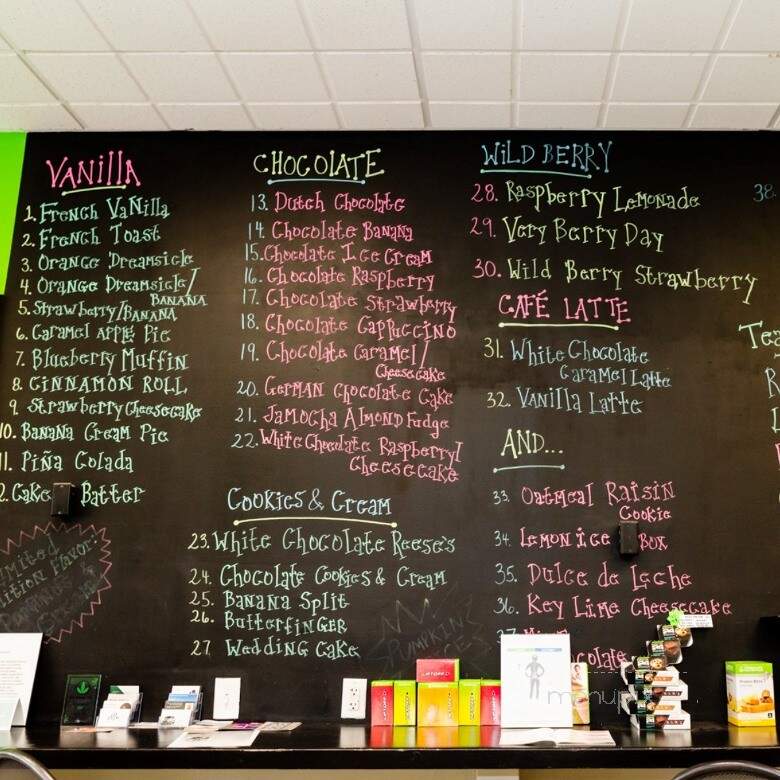 VANILLA
1. FRENCH VANILLA
2. FRENCH TOAST
3. ORANGE DREAMSICLE
4. ORANGE DREAMSICLE/
BANANA
5. STRAWBERRY/BANANA
6. CARAMEL APPLE PIE
7. BLUEBERRY MUFFIN
8. CINNAMON ROLL
9. STRAWBERRY CHEESECAKE
10. BANANA CREAM PIE
11. PIÑA COLADA
2. CAKE BATTER
LIMITED
EDITION FLAVOR:
CHOCOLATE
13. DUTCH CHOCOLATE
14. CHOCOLATE BANANA
15. CHOCOLATE ICE CREAM
16. CHOCOLATE RASPBERRY
17. CHOCOLATE STRAWBERRY
18. CHOCOLATE CAPPUCCINO
19. CHOCOLATE CARAMEL/
CHEESECAKE
20. GERMAN CHOCOLATE CAKE
21. JAMOCHA ALMOND FUDGE
22. WHITE CHOCOLATE RASPBERRY/
CHEESECAKE
COOKIES & CREAM
23. WHITE CHOCOLATE REESE'S
24. CHOCOLATE COOKIES & CREAM
25. BANANA SPLIT
26. BUTTERFINGER
27 WEDDING CAKE
PUMPKIN
WILD BERRY
28. RASPBERRY LEMONADE
29. VERY BERRY DAY
30. WILD BERRY STRAWBERRY
CAFÉ LATTE
31. WHITE CHOCOLATE
CARAMEL LATTE
32. VANILLA LATTE
AND...
33. OATMEAL RAISIN
COOKIE
34. LEMON ICE BOX
35. DULCE DE LECHE
36. KEY LIME CHEESECAKE
37
38
Tea
menu